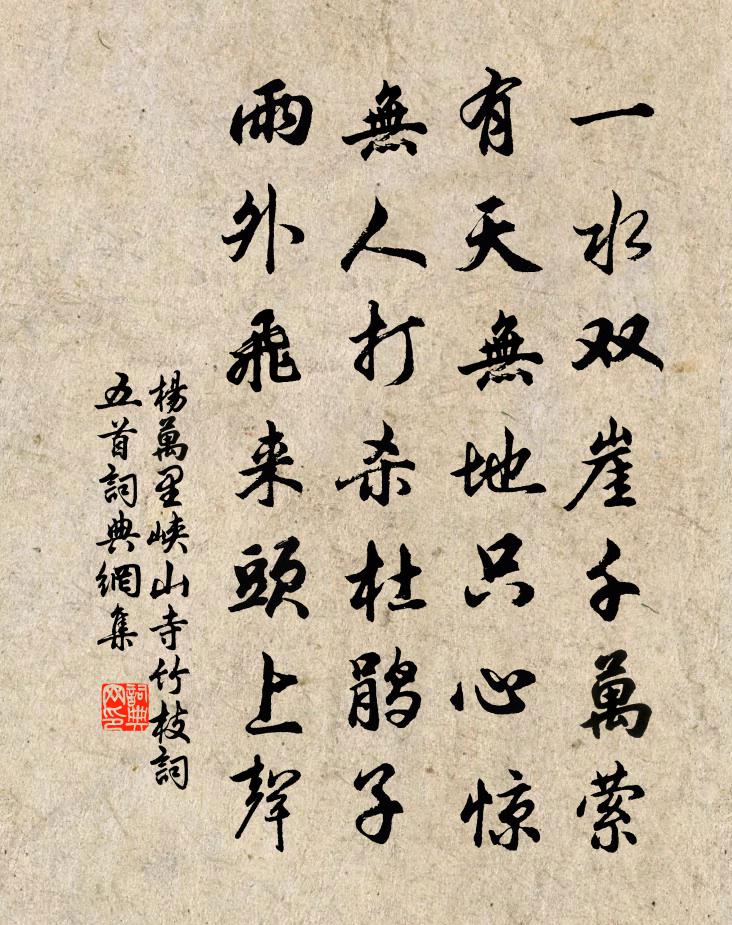 一水双崖千萬萦
有天無地只心惊
無人打杀杜鹃子
雨外飛来頭上聲
楊萬里峽山寺竹枝詞
五首詞典網集
詞典
网印